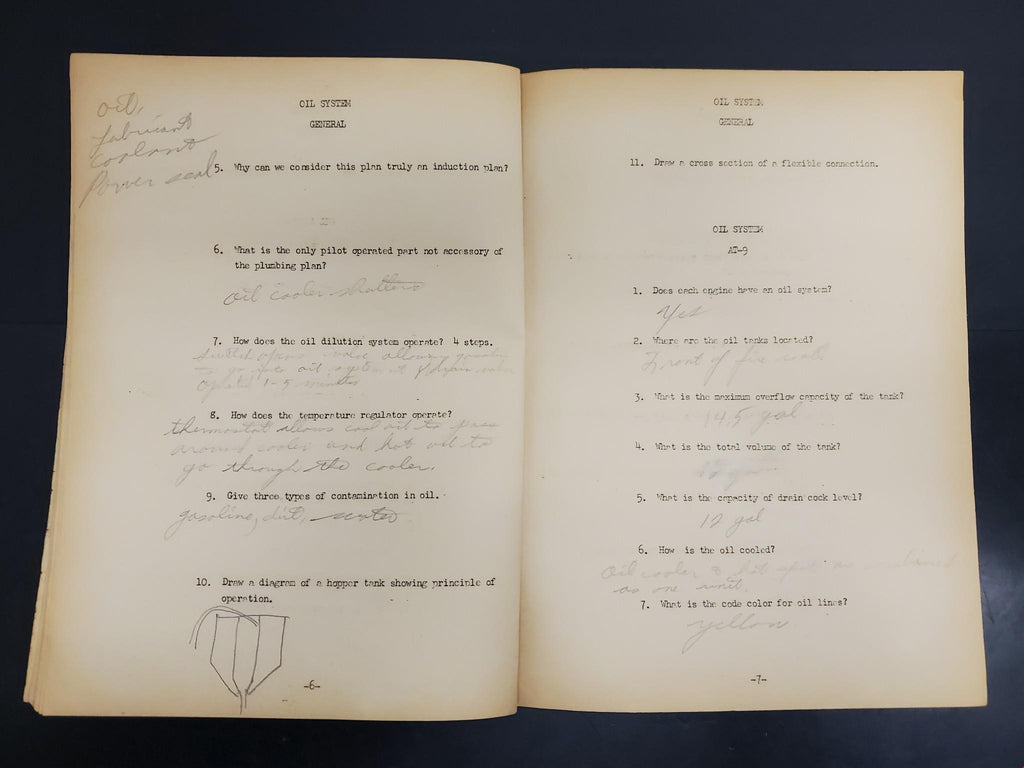 oil,
Lubricant
Coolant
Power seal
OIL SYSTEM
GENERAL
5. Why can we consider this plan truly an induction plan?
6. What is the only pilot operated part not accessory of
the plumbing plan?
oil cooler shutters
7. How does the oil dilution system operate? 4 steps.
switch opens valve allowing gasoline
to go into oil system at Y drain valve
1-5 minutes
8. How does the temperature regulator operate?
thermostat allows cool oil to pass
around cooler and hot oil to
go through the cooler.
9. Give three types of contamination in oil.
gasoline, dirt, water
10. Draw a diagram of a hopper tank showing principle of
operation.
-6-
OIL SYSTEM
GENERAL
11. Draw a cross section of a flexible connection.
OIL SYSTEM
AT-9
1. Does each engine have an oil system?
Yes
2. Where are the oil tanks located?
Front of fire wall
3. What is the maximum overflow capacity of the tank?
14.5 gal
4. What is the total volume of the tank?
5. What is the capacity of drain cock level?
12 gal
6. How is the oil cooled?
Oil cooler & hot spot are combined
as one unit.
7. What is the code color for oil lines?
yellow
-7-